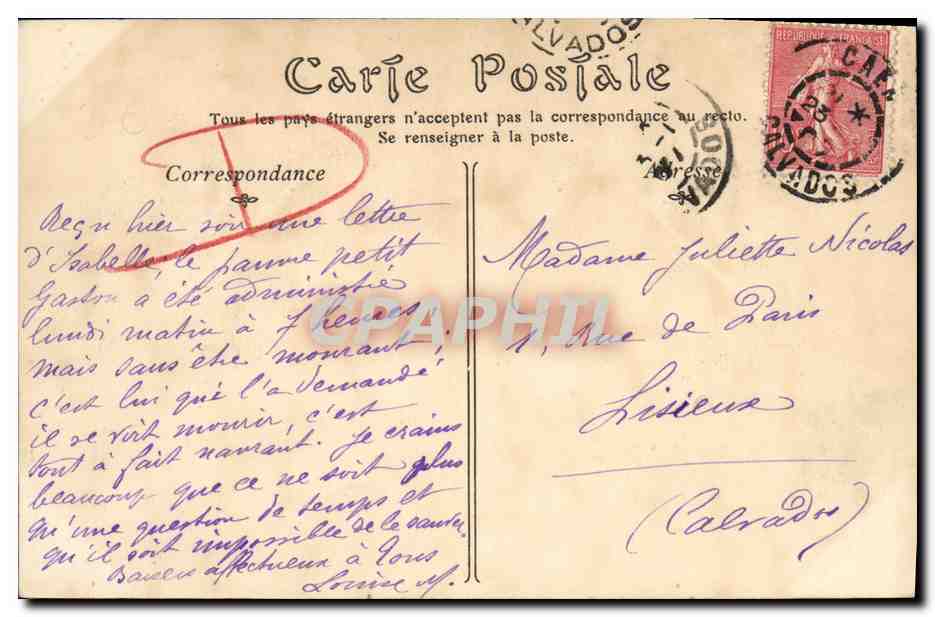 CALVADOS
Carte Postale
REPUBLIQUE FRANCAISE
CAEN
CALVADOS
Tous les pays étrangers n'acceptent pas la correspondance au recto.
Se renseigner à la poste.
Correspondance
Adresse
D
Reçu hier soir une lettre
d'Isabelle, le pauvre petit
Gaston a été administré
lundi matin à 7 heures,
mais sans être mourant;
c'est lui qui l'a demandé
il se voit mourir, c'est
tout à fait navrant. Je crains
beaucoup que ce ne soit plus
qu'une question de temps et
qu'il soit impossible de le sauver.
Baisers affectueux à Tous
Louise M.
Madame Juliette Nicolas
1, Rue de Paris
Lisieux
(Calvados)
CPAPHIL